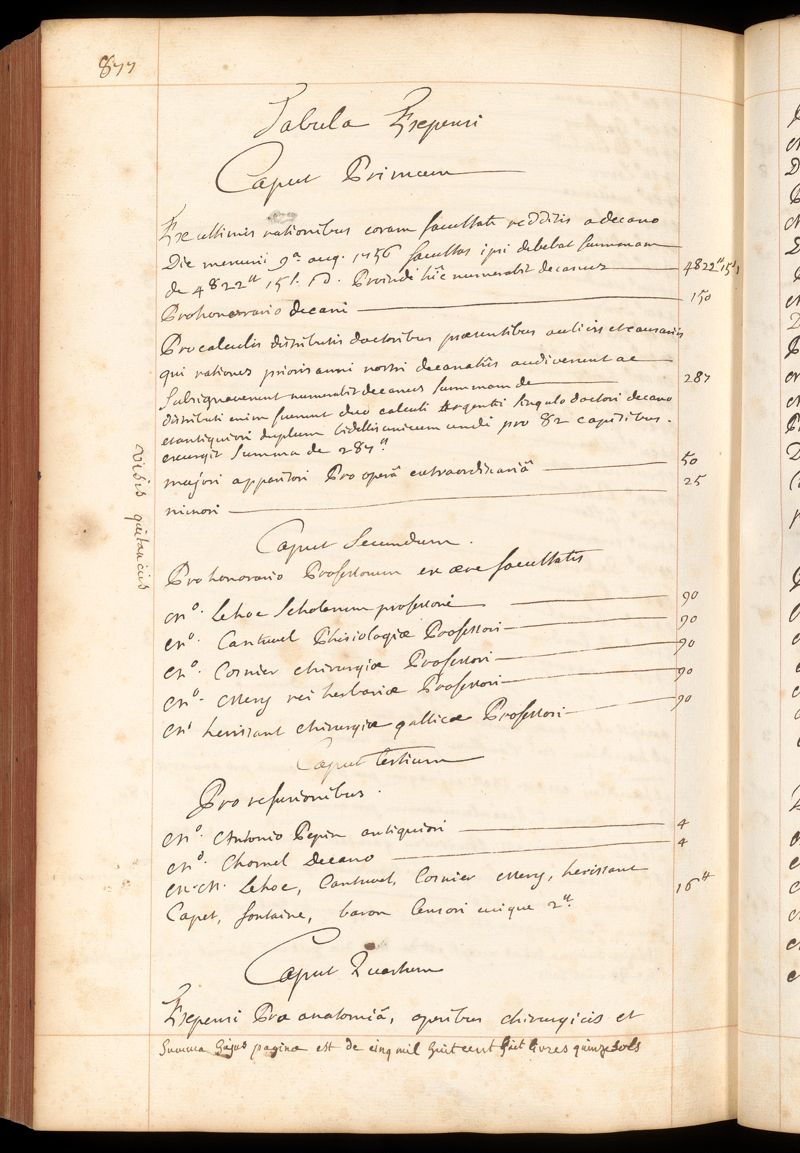 877
Tabula Expensi
Caput Primum
Ex ultimis rationibus coram facultate redditis a decano
Die mercurii 9ª aug. 1756 facultas ipsi debebat summam
de 4822ᵗᵗ 15ˢ. 1ᵈ. Proinde hîc numerabit decanus 4822ᵗᵗ 15ˢ 1
Pro honorario decani 150
Pro calculis distributis doctoribus praesentibus auditis et
qui rationes prioris anni nostri decanatûs audiverunt ac
subsignaverunt numerabit decanus summam de 287
distributi enim fuerunt duo calculi argentei singulo doctori decano
et antiquiori duplum unde pro 82 capitibus.
exurgit summa de 287ᵗᵗ
majori apparitori Pro operâ extraordinariâ 50
minori 25
Visis quitanciis
Caput Secundum.
Pro honorario Professorum ex aere facultatis
Mº. Lehoc Scholarum professori 90
Mº. Cantwel Phisiologiæ Professori 90
Mº. Cosnier chirurgiæ Professori 90
Mº. Mery rei herbariæ Professori 90
Mº herissant chirurgiæ gallicæ Professori 90
Caput tertium
Pro refusionibus.
Mº. Antonio Pepin antiquiori 4
Mº. Chomel Decano 4
M.M. Lehoc, Cantwel, Cosnier Mery, herissant
Capet, fontaine, baron Censori cuique 2ᵗᵗ. 16ᵗᵗ
Caput Quartum
Expensi Pro anatomiâ, operibus chirurgicis et
Summa hujus paginæ est de cinq mil huit cent huit livres quinze sols